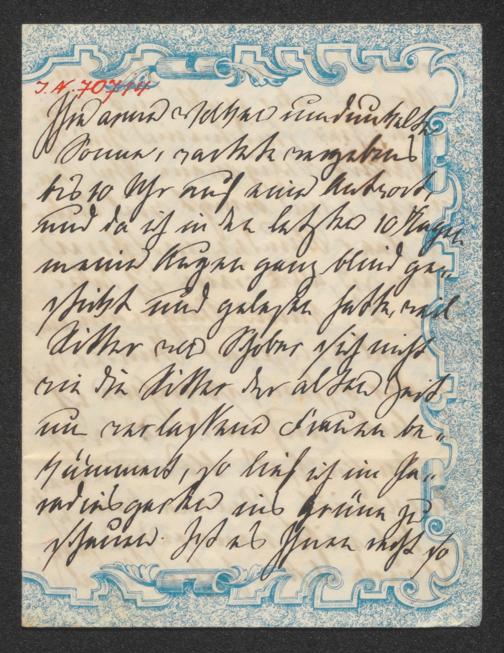 J. N. 70714
Die arme                umdunkelte
Sonne, wartete vergebens
bis 10 Uhr auf eine Antwort
und da ich in den letzten 10 Tagen
meine Augen ganz blind ge-
stickt und gelesen hatte, weil
Ritter von Schober sich nicht
wie die Ritter der alten Zeit
um verlassene Frauen be-
kümmert, so lief ich im Pa-
radiesgarten ins Grüne zu
schauen. Ist es Ihnen recht so